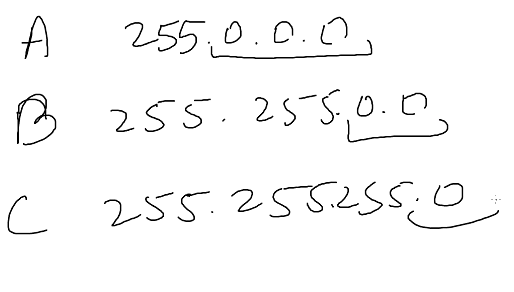 A 255.0.0.0
B 255.255.0.0
C 255.255.255.0